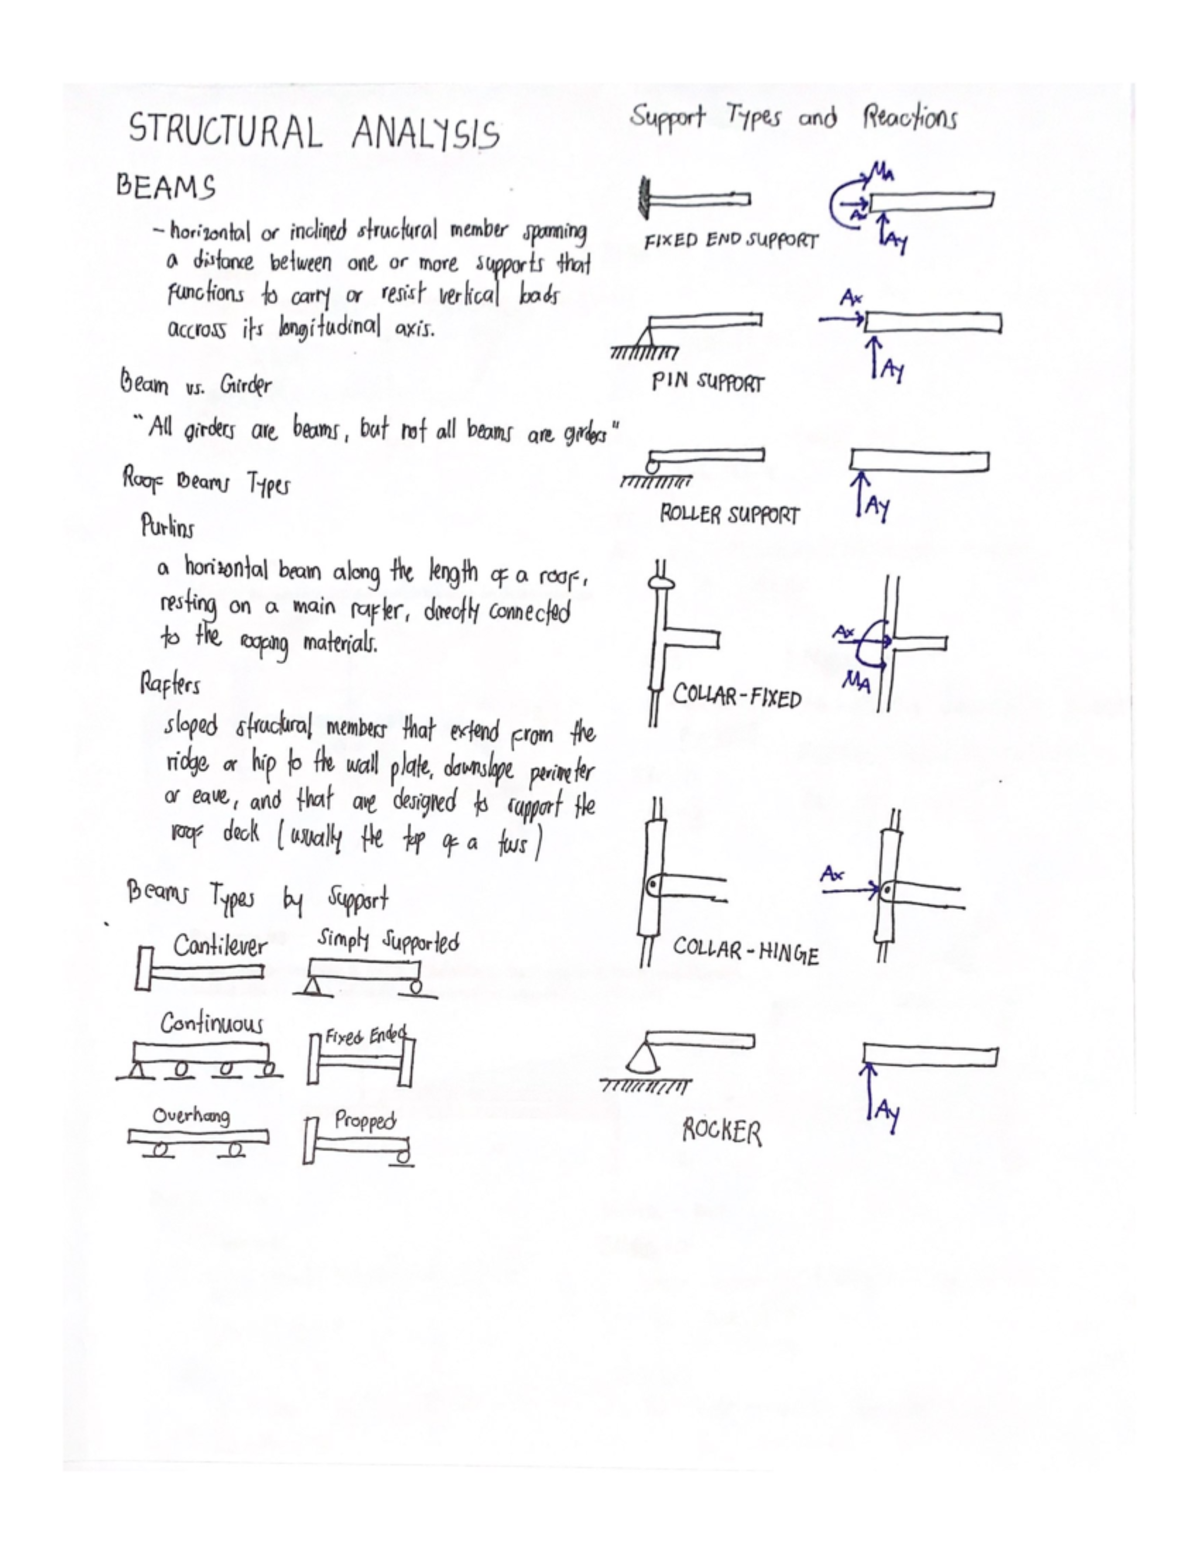 STRUCTURAL ANALYSIS
BEAMS
- horizontal or inclined structural member spanning
a distance between one or more supports that
functions to carry or resist vertical loads
accross its longitudinal axis.
Beam vs. Girder
"All girders are beams, but not all beams are girders"
Roof Beams Types
Purlins
a horizontal beam along the length of a roof,
resting on a main rafter, directly connected
to the roofing materials.
Rafters
sloped structural members that extend from the
ridge or hip to the wall plate, downslope perimeter
or eave, and that are designed to support the
roof deck (usually the top of a truss)
Beams Types by Support
Cantilever
Simply Supported
Continuous
Fixed Ended
Overhang
Propped
Support Types and Reactions
MA
Ax
Ay
FIXED END SUPPORT
Ax
Ay
PIN SUPPORT
Ay
ROLLER SUPPORT
Ax
MA
COLLAR-FIXED
Ax
COLLAR-HINGE
Ay
ROCKER